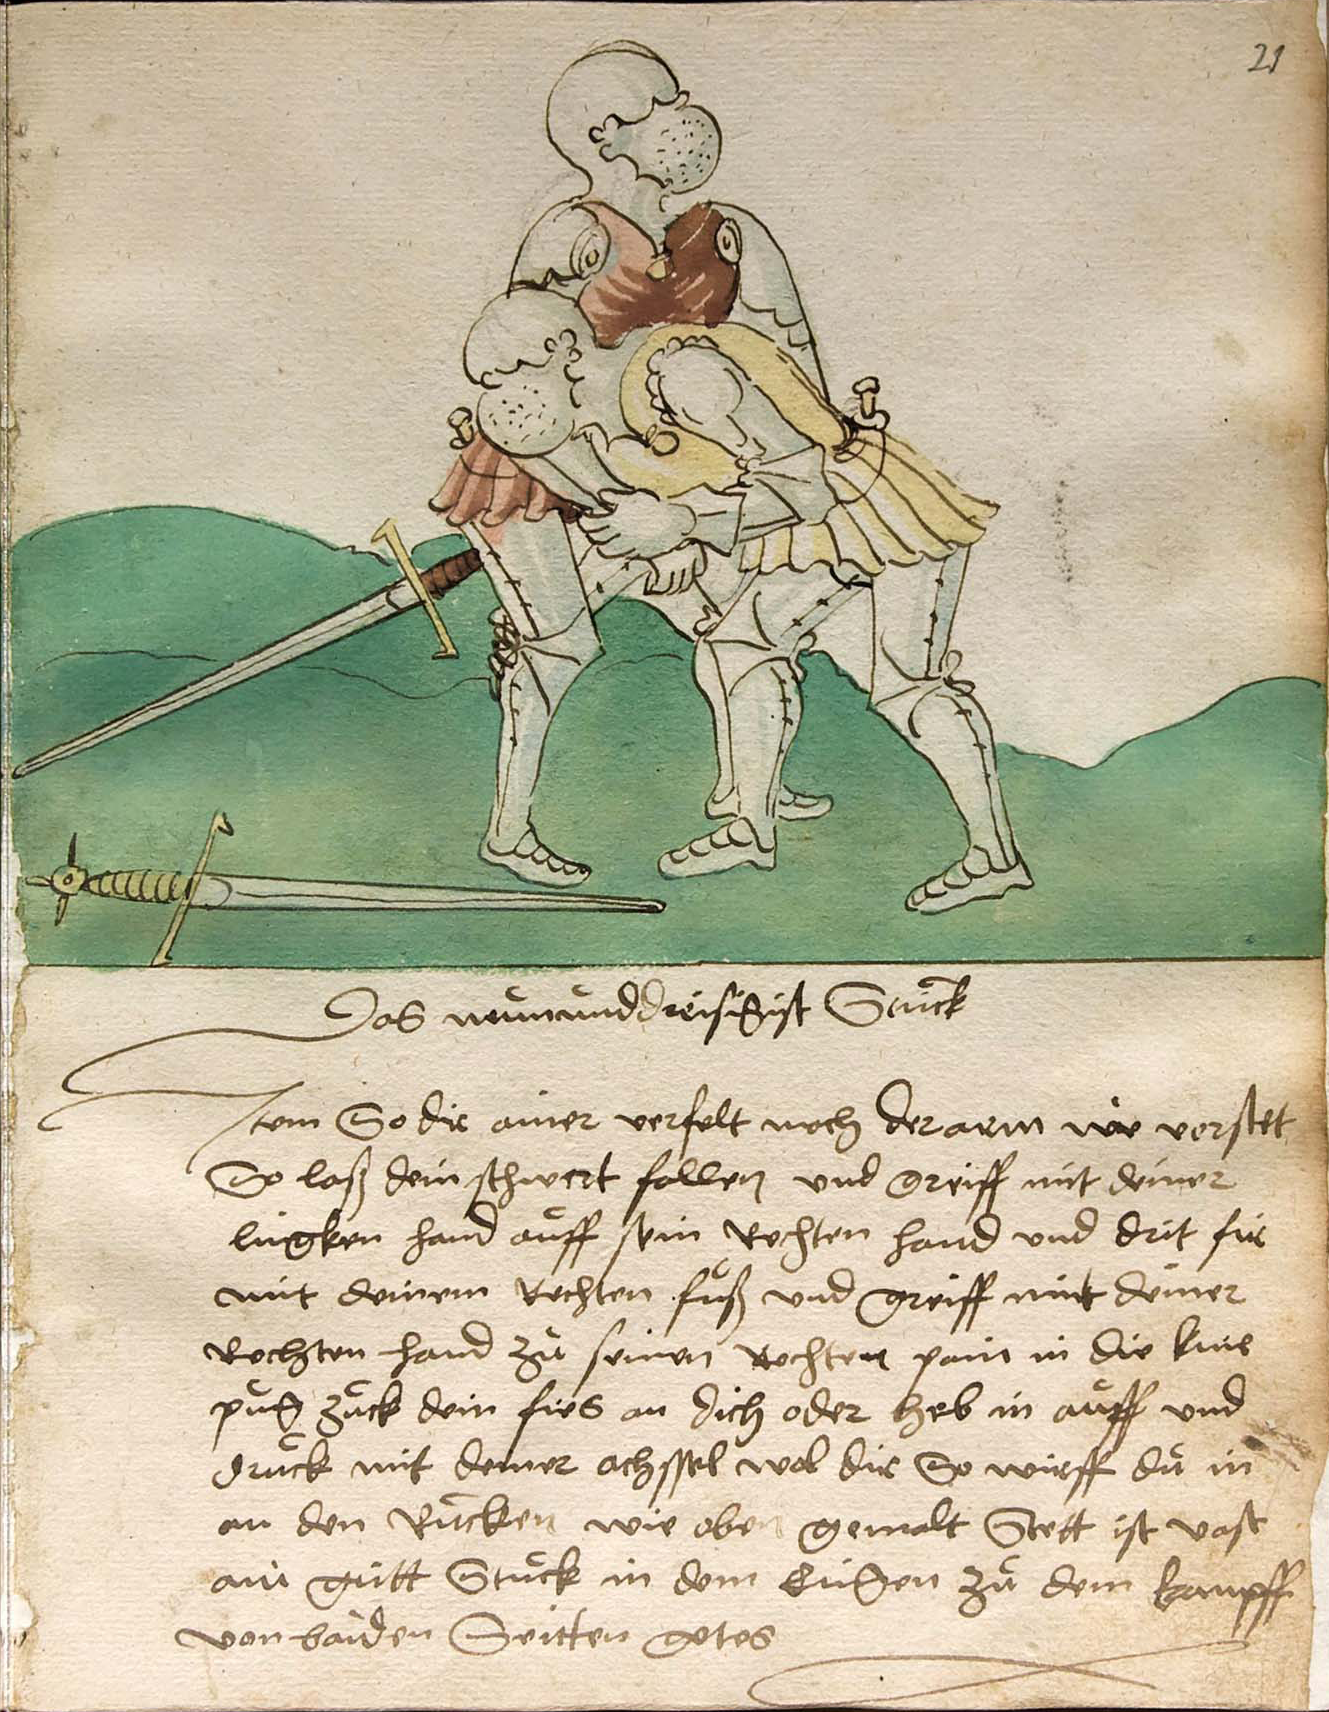 21
Das neününddreisigist Stück
Item So dir ainer verfelt noch der arm wie vorstet
So laß dein schwert fallen und greiff mit deiner
lingken hand aüff sein Rechten hand und drit für
mit deinem Rechten füß und greiff mit deiner
Rechten hand zü seinen Rechten pain in die knie
püg zück dein fies an dich oder heb in aüff und
drück mit deiner achssel wol dir So wirff dü in
an den Rücken wie oben gemalt Stett ist vast
ain gütt Stück in dem zü dem kampff
von baiden Seitten